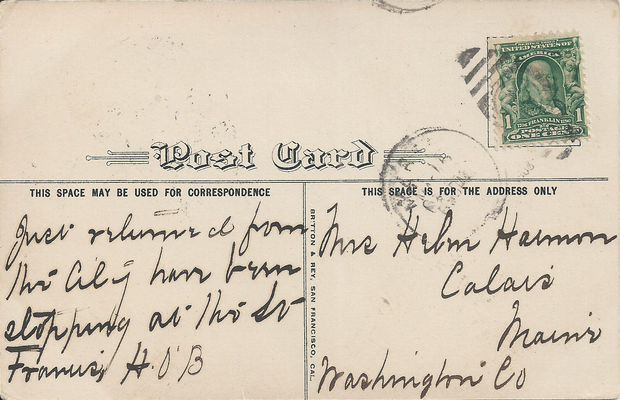 UNITED STATES OF
AMERICA
1 1706 FRANKLIN 1790 1
POSTAGE
ONE CENT
Post Card
THIS SPACE MAY BE USED FOR CORRESPONDENCE
THIS SPACE IS FOR THE ADDRESS ONLY
Just returned from
the City have been
stopping at the St
Francis, H.O.B
BRITTON & REY, SAN FRANCISCO, CAL.
Mrs Harmon
Calais
Maine
Washington Co